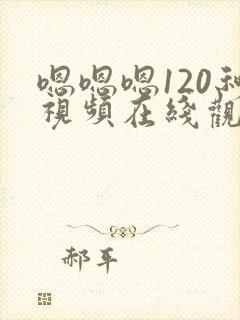 嗯嗯嗯120秒
視頻在綫觀
郝平